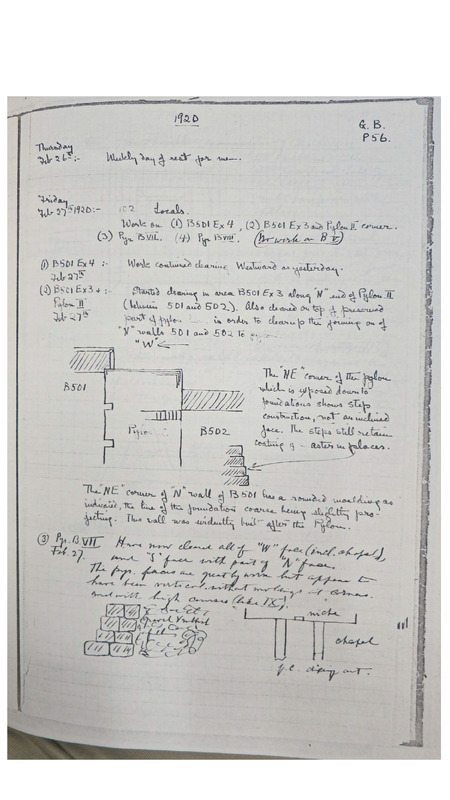 1920
G. B.
P56.
Thursday
Feb 26th:- Weekly day of rest for men.
Friday
Feb 27th 1920:- 102 Locals.
Work on (1) B501 Ex 4, (2) B501 Ex 3 and Pylon II corner.
(3) Pyr. B VII. (4) Pyr B VIII. (No work on B V)
(1) B501 Ex 4 :- Work continued clearing Westward as yesterday.
Feb 27th
(2) B501 Ex 3 + :- Started clearing in area B501 Ex 3 along "N" end of Pylon II
Pylon II (between 501 and 502). Also cleared on top of preserved
Feb 27th part of pylon in order to clear up the joining on of
"N" walls 501 and 502 to
"W"
B501
B502
The "NE" corner of the pylon
which is exposed down to
foundations shows step
construction, not an inclined
face. The steps still retain
coating of places.
The "NE" corner of "N" wall of B501 has a rounded moulding as
indicated, the line of the foundation course being slightly pro-
jecting. This wall was evidently built after the Pylon.
(3) Pyr. B VII Have now cleared all of "W" face (incl. chapel),
Feb. 27. and face with part of "N" face.
The pyr. faces are greatly worn but appear to
have been vertical without moldings at corners
and with high courses (like IX).
niche
chapel